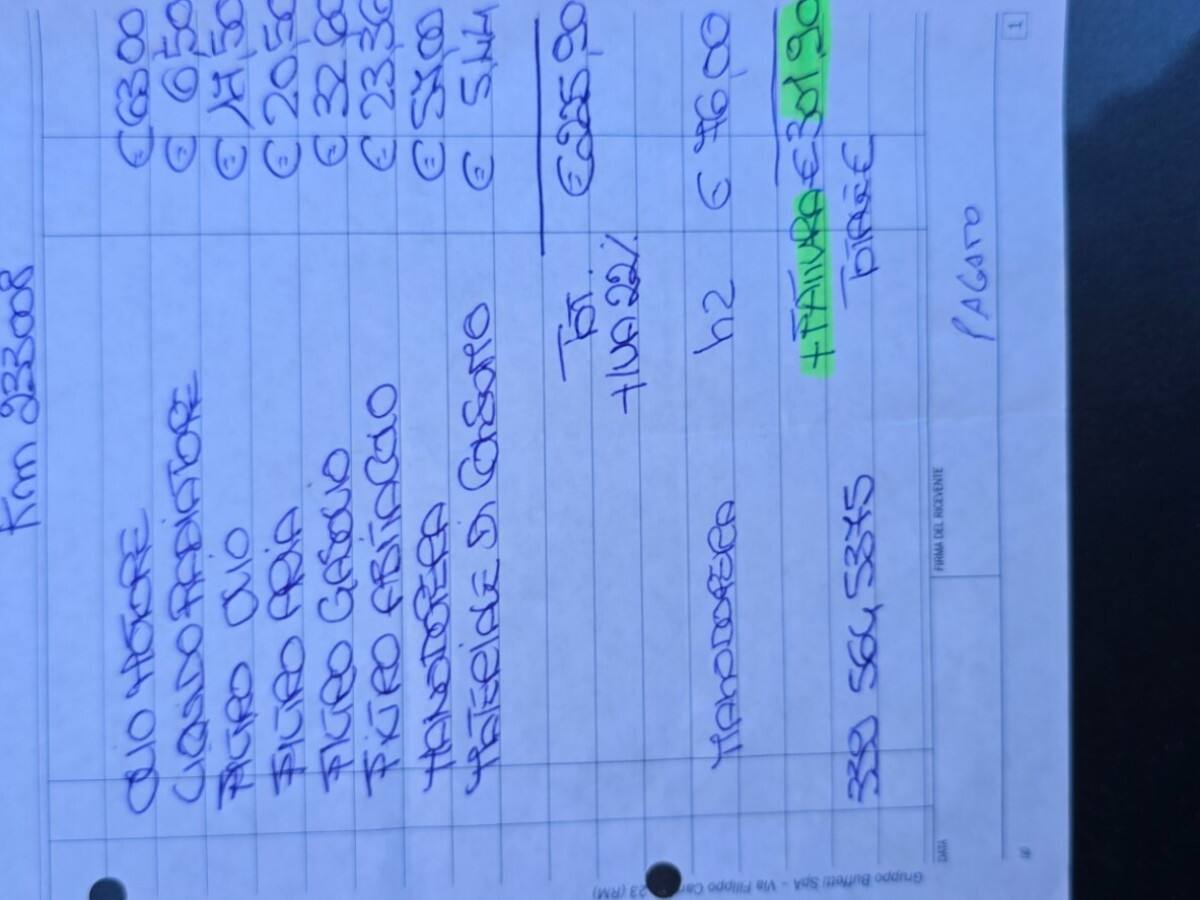 Km 233008
OLIO MOTORE € 63,00
LIQUIDO RADIATORE € 6,50
FILTRO OLIO € 17,50
FILTRO ARIA € 20,50
FILTRO GASOLIO € 32,00
FILTRO ABITACOLO € 23,36
MANODOPERA € 57,00
MATERIALE DI CONSUMO € 5,44
TOT. € 225,90
+ IVA 22%
MANODOPERA h2 € 76,00
+ FATTURA € 301,90
339 564 5375 TOTALE
DATA FIRMA DEL RICEVENTE
PAGATO
1
Gruppo Buffetti SpA - Via Filippo 23 (RM)